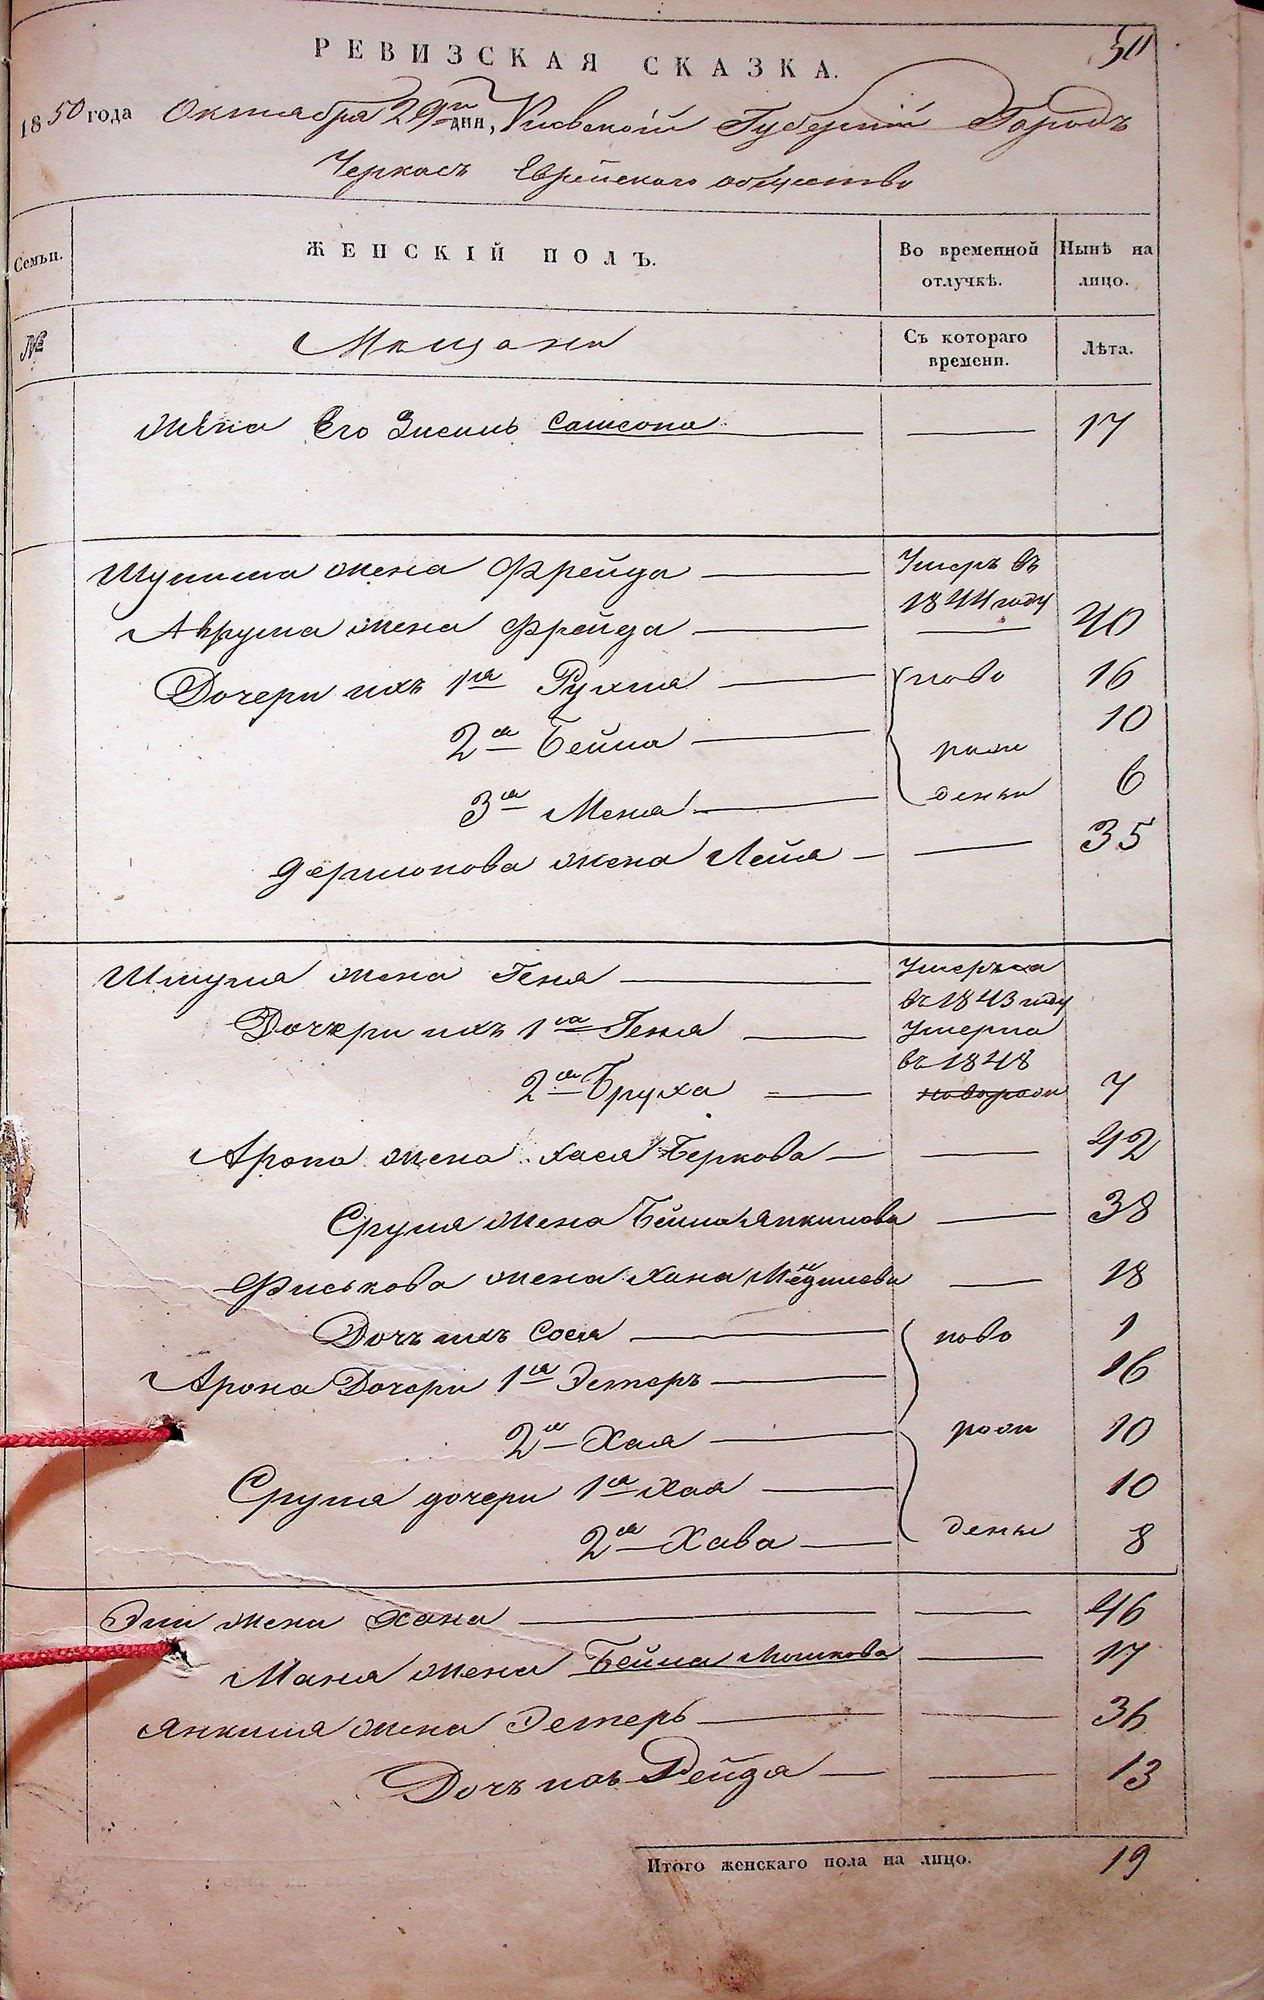 РЕВИЗСКАЯ СКАЗКА.
1850 года Октября 29 дня, Киевской Губернии Городъ
Черкасъ Еврейскаго общества
Семьи. ЖЕНСКІЙ ПОЛЪ. Во временной отлучкѣ. Нынѣ на лицо.
№ Мещане Съ котораго времени. Лѣта.
жена Его 17
жена Фрейда Умеръ въ
1844 году
Аврума жена Фрейда 40
Дочери ихъ 1я Рухля ново 16
2я Бейла рож 10
3я Меня деньи 6
жена Лейя 35
Шмуля жена Геня Умерла
въ 1843 году
Дочери ихъ 1я Геня Умерла
въ 1848
2я Бруха 7
Арона жена Хася Беркова 42
Сруля жена Бейла Янкилова 38
Фиськова жена Хана 18
Дочь ихъ Сося ново 1
Арона Дочери 1я Эстеръ 16
2я Хая рож 10
Сруля дочери 1я Хая 10
2я Хава деньи 8
жена Хана 46
жена Бейла Мошкова 17
Янкиля жена Эстеръ 36
Дочь ихъ Рейза 13
Итого женскаго пола на лицо. 19